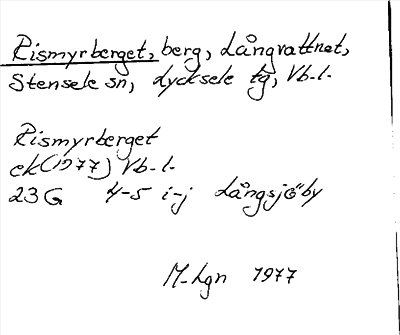 Rismyrberget, berg, Långvattnet,
Stensele sn, Lycksele tg, Vb-l.
Rismyrberget
ek (1977) Vb-l.
23 G 4-5 i-j Långsjöby
M-Lgn 1977